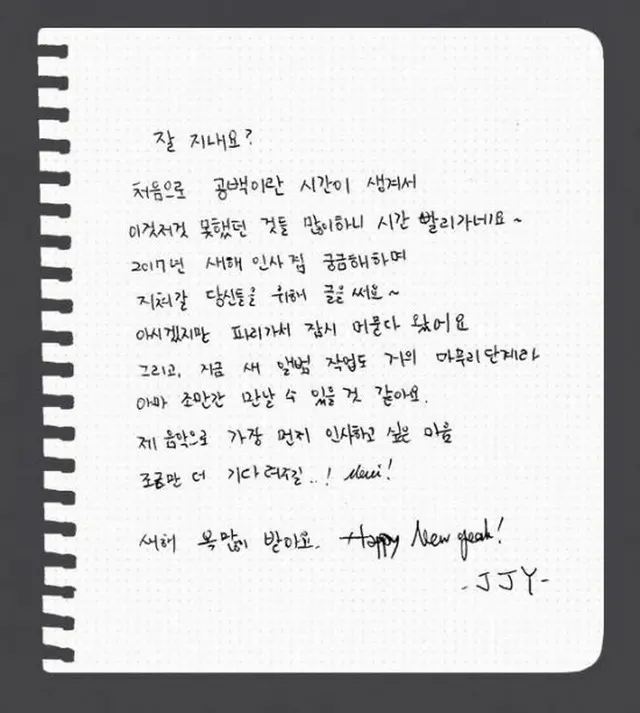 잘 지내요?
처음으로 공백이란 시간이 생겨서
이것저것 못했던 것들 많이하니 시간 빨리가네요~
2017년 새해 인사 겸 궁금해하며
지쳐갈 당신들을 위해 글을 써요~
아시겠지만 파리가서 잠시 머물다 왔어요
그리고, 지금 새 앨범 작업도 거의 마무리단계라
아마 조만간 만날 수 있을 것 같아요.
제 음악으로 가장 먼저 인사하고 싶은 마음
조금만 더 기다려주길..! Merci!
새해 복 많이 받아요. Happy New year!
- JJY -